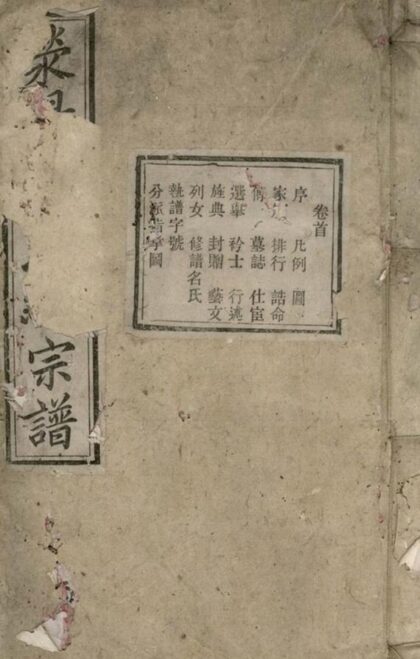 卷首
序 凡例 圖
家 排行 誥命
傳 墓誌 仕宦
選舉 衿士 行述
旌典 封贈 藝文
列女 修譜名氏
執譜字號
分派 圖
宗譜